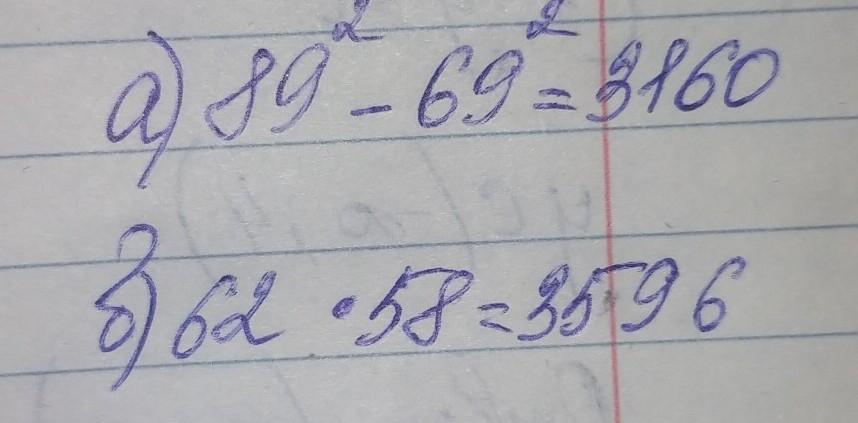 а) 89² - 69² = 3160
б) 62 · 58 = 3596